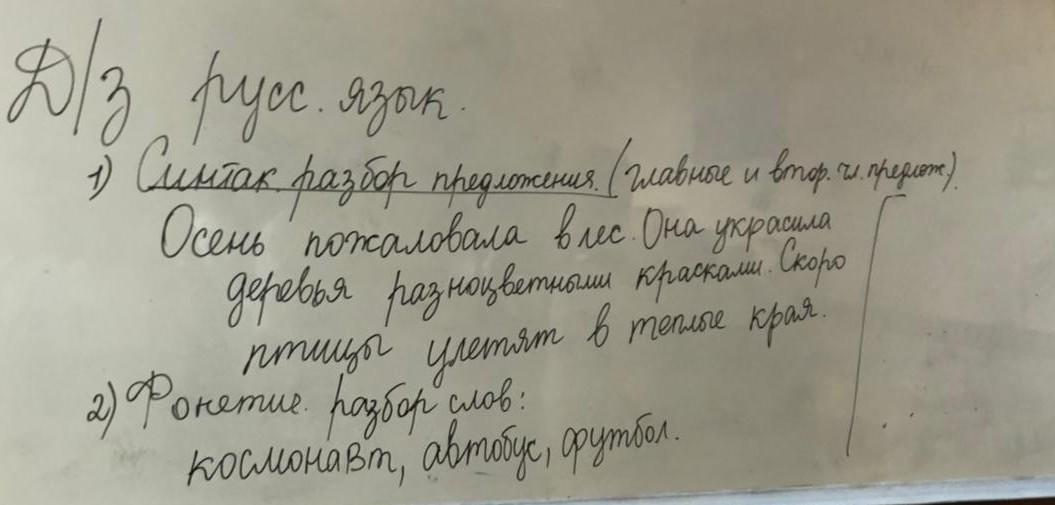 Д/з русс. язык.
1) Синтак. разбор предложения. (главные и втор. чл. предлож.)
Осень пожаловала в лес. Она украсила
деревья разноцветными красками. Скоро
птицы улетят в теплые края.
2) Фонетич. разбор слов:
космонавт, автобус, футбол.